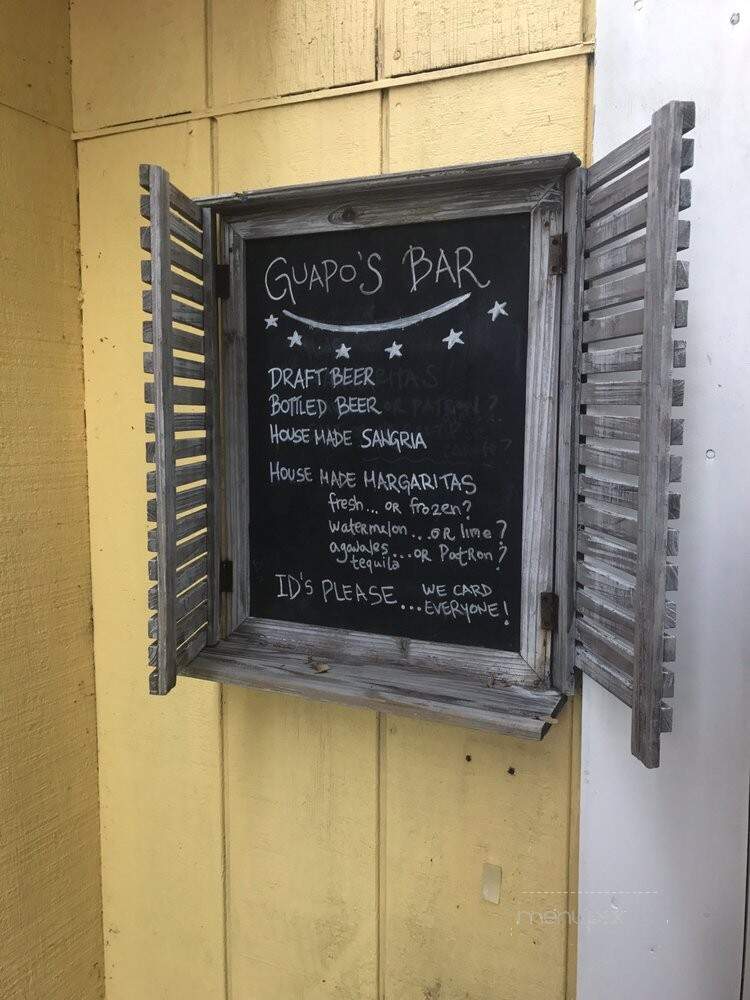 GUAPO'S BAR
DRAFT BEER
BOTTLED BEER
HOUSE MADE SANGRIA
HOUSE MADE MARGARITAS
fresh... or frozen?
watermelon...or lime?
agavales...or Patron?
tequila
ID'S PLEASE... WE CARD
EVERYONE!